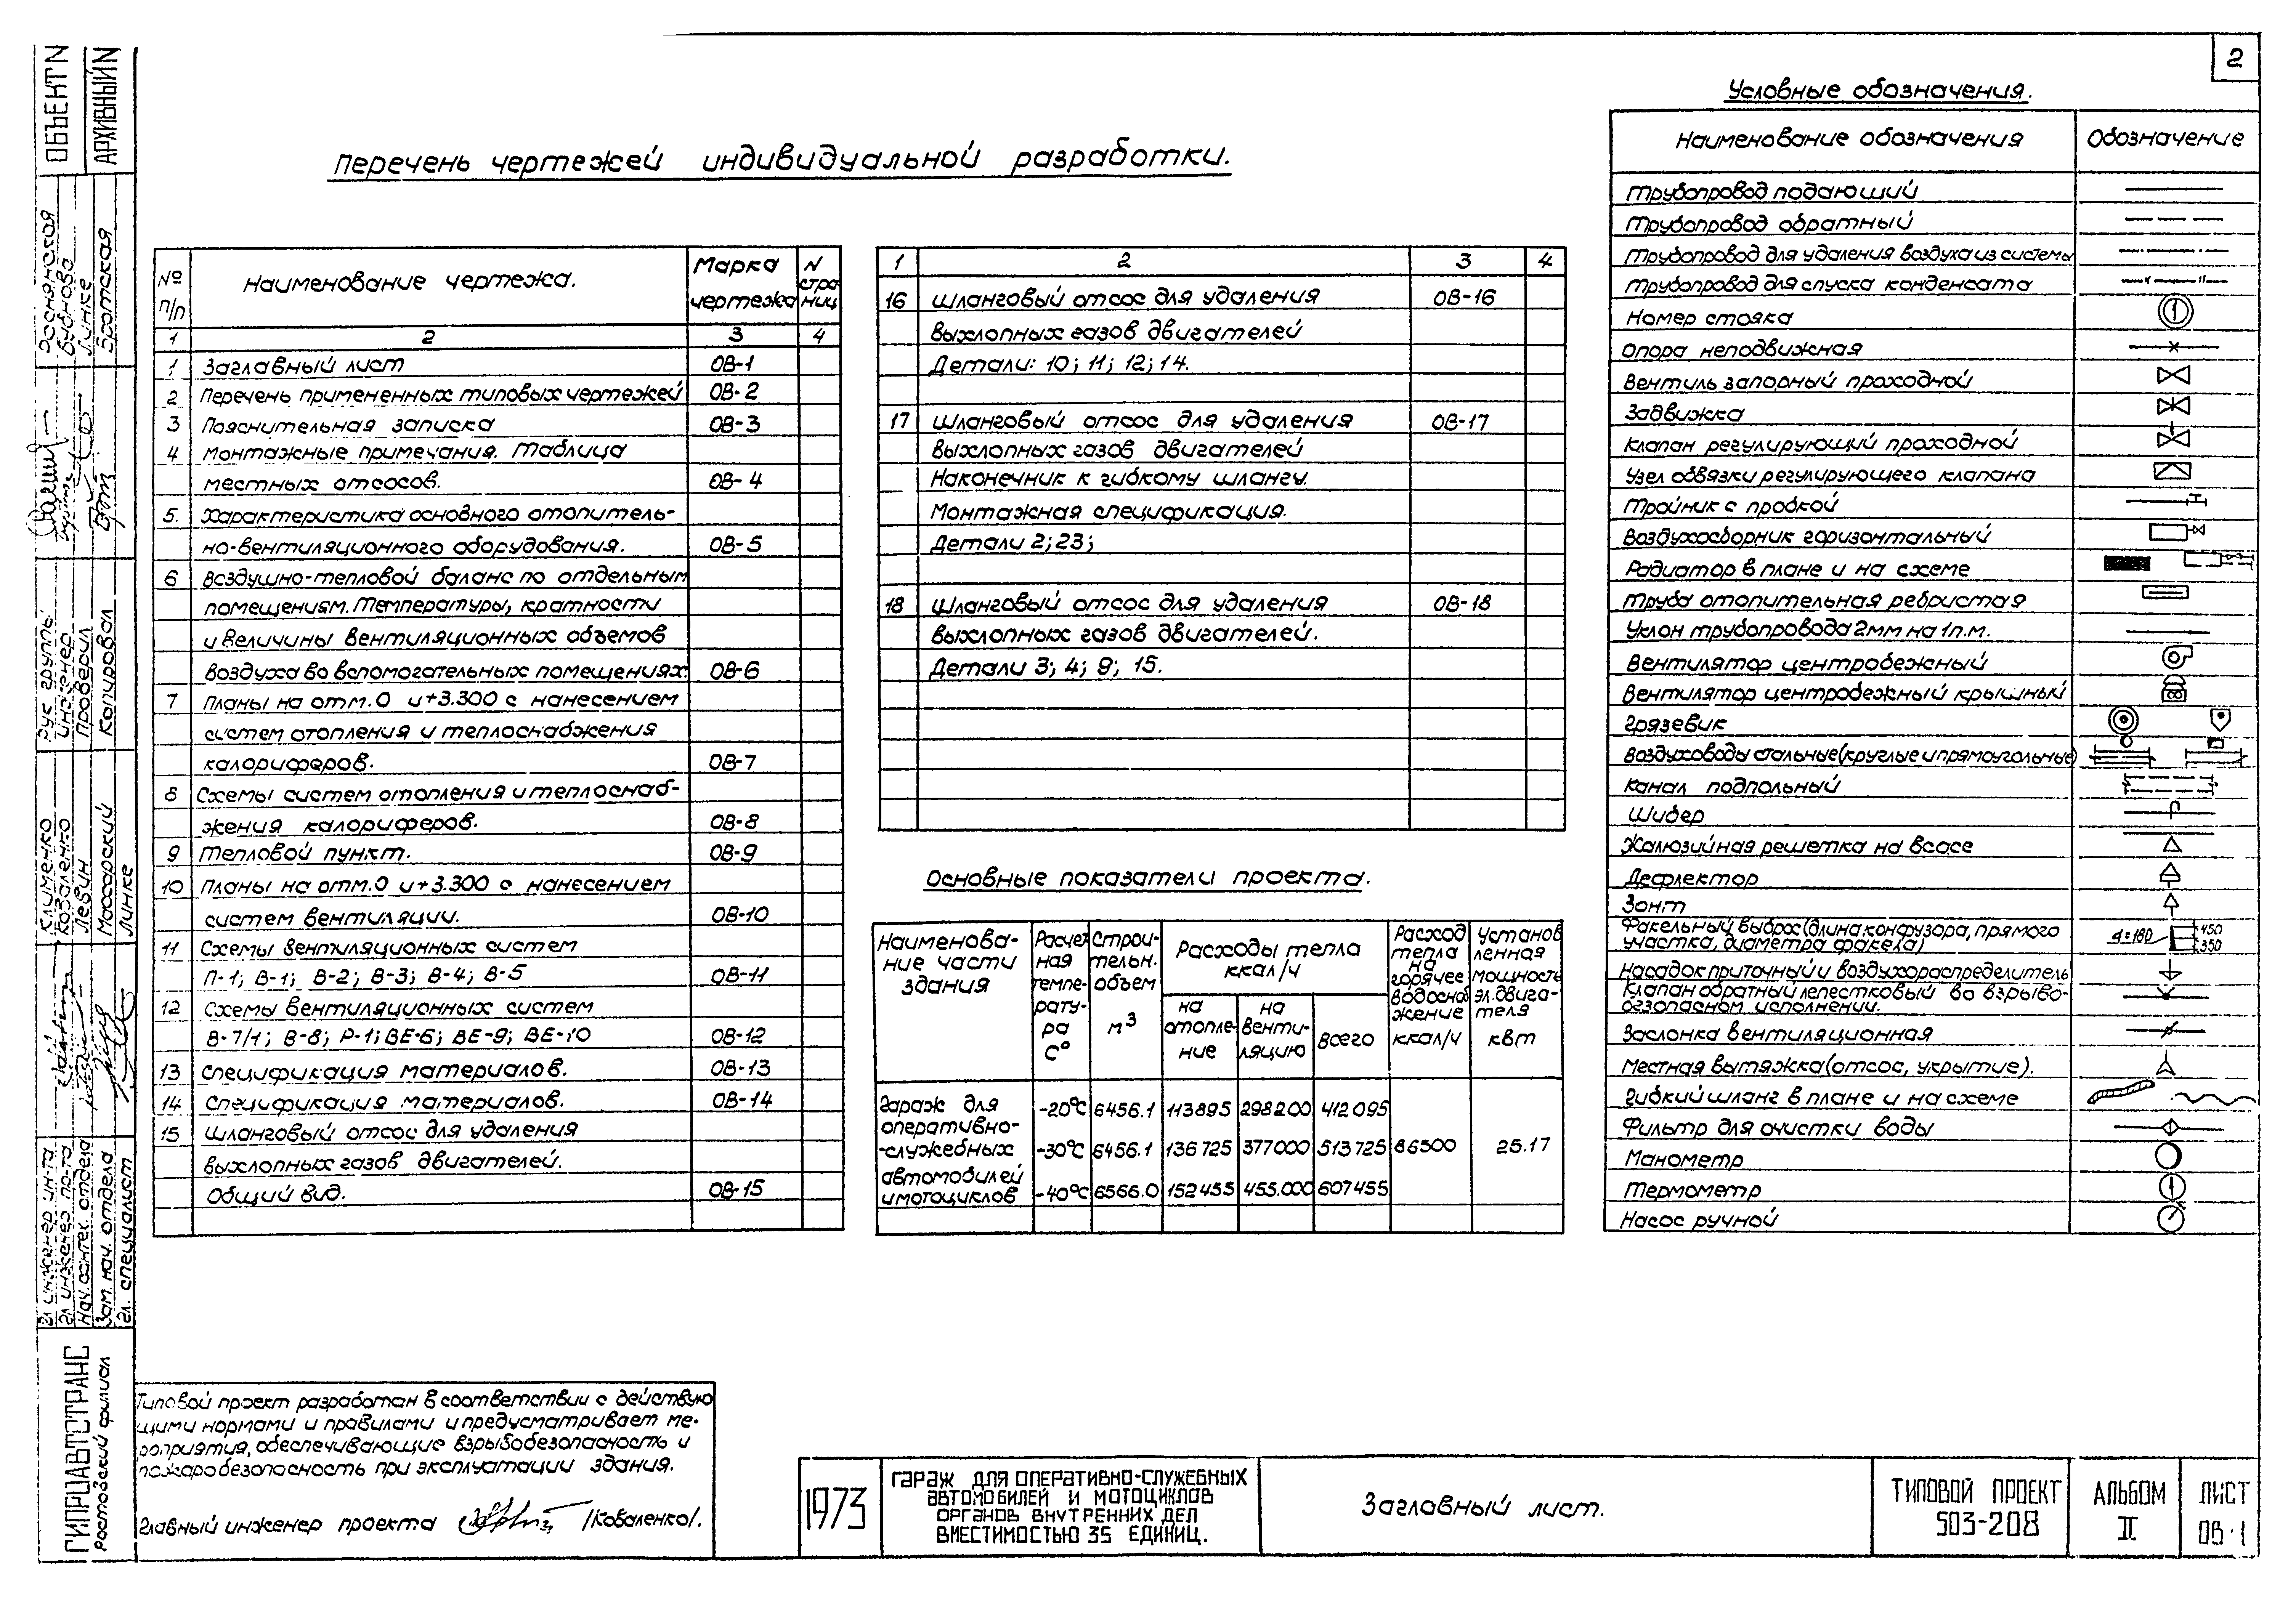 2
Перечень чертежей индивидуальной разработки.
№ п/п Наименование чертежа. Марка чертежа N страниц
1 2 3 4
1 Заглавный лист ОВ-1
2 Перечень примененных типовых чертежей ОВ-2
3 Пояснительная записка ОВ-3
4 Монтажные примечания. Таблица
местных отсосов. ОВ-4
5. Характеристика основного отопитель-
но-вентиляционного оборудования. ОВ-5
6 Воздушно-тепловой баланс по отдельным
помещениям. Температуры, кратности
и величины вентиляционных объемов
воздуха во вспомогательных помещениях. ОВ-6
7 Планы на отм. 0 и +3.300 с нанесением
систем отопления и теплоснабжения
калориферов. ОВ-7
8 Схемы систем отопления и теплоснаб-
жения калориферов. ОВ-8
9 Тепловой пункт. ОВ-9
10 Планы на отм. 0 и +3.300 с нанесением
систем вентиляции. ОВ-10
11 Схемы вентиляционных систем
П-1; В-1; В-2; В-3; В-4; В-5 ОВ-11
12 Схемы вентиляционных систем
В-7/1; В-8; Р-1; ВЕ-6; ВЕ-9; ВЕ-10 ОВ-12
13 Спецификация материалов. ОВ-13
14 Спецификация материалов. ОВ-14
15 Шланговый отсос для удаления
выхлопных газов двигателей.
Общий вид. ОВ-15
1 2 3 4
16 Шланговый отсос для удаления ОВ-16
выхлопных газов двигателей
Детали: 10; 11; 12; 14.
17 Шланговый отсос для удаления ОВ-17
выхлопных газов двигателей
Наконечник к гибкому шлангу.
Монтажная спецификация.
Детали 2; 23;
18 Шланговый отсос для удаления ОВ-18
выхлопных газов двигателей.
Детали 3; 4; 9; 15.
Основные показатели проекта.
Наименова-
ние части
здания
Расчет
ная
темпе-
рату-
ра
С°
Строи-
тельн.
объем
м³
Расходы тепла
ккал/ч
на
отопле-
ние
на
венти-
ляцию
всего
Расход
тепла
на
горячее
водоснаб
жение
ккал/ч
Установ
ленная
мощность
эл.двига-
теля
квт
Гараж для
оперативно-
-служебных
автомобилей
и мотоциклов
-20°С 6456.1 113895 298200 412095
-30°С 6456.1 136725 377000 513725 86500 25.17
-40°С 6566.0 152455 455.000 607455
Условные обозначения.
Наименование обозначения Обозначение
Трубопровод подающий
Трубопровод обратный
Трубопровод для удаления воздуха из системы
Трубопровод для спуска конденсата
Номер стояка 1
Опора неподвижная
Вентиль запорный проходной
Задвижка
Клапан регулирующий проходной
Узел обвязки регулирующего клапана
Тройник с пробкой
Воздухосборник горизонтальный
Радиатор в плане и на схеме
Труба отопительная ребристая
Уклон трубопровода 2мм на 1п.м.
Вентилятор центробежный
Вентилятор центробежный крышный
Грязевик
Воздуховоды стальные (круглые и прямоугольные)
Канал подпольный
Шибер
Жалюзийная решетка на всасе
Дефлектор
Зонт
Факельный выброс (длина конфузора, прямого
участка, диаметра факела) d=180 450
350
Насадок приточный и воздухораспределитель
Клапан обратный лепестковый во взрыво-
безопасном исполнении.
Заслонка вентиляционная
Местная вытяжка (отсос, укрытие).
Гибкий шланг в плане и на схеме
Фильтр для очистки воды
Манометр
Термометр
Насос ручной
Типовой проект разработан в соответствии с действую
щими нормами и правилами и предусматривает ме-
роприятия, обеспечивающие взрывобезопасность и
пожаробезопасность при эксплуатации здания.
Главный инженер проекта /Коваленко/.
1973
ГАРАЖ ДЛЯ ОПЕРАТИВНО-СЛУЖЕБНЫХ
АВТОМОБИЛЕЙ И МОТОЦИКЛОВ
ОРГАНОВ ВНУТРЕННИХ ДЕЛ
ВМЕСТИМОСТЬЮ 35 ЕДИНИЦ.
Заглавный лист.
ТИПОВОЙ ПРОЕКТ
503-208
АЛЬБОМ
II
ЛИСТ
ОВ-1
ОБЪЕКТ N
АРХИВНЫЙ N
Бубнова
Линке
Братская
Рук. группы
Инженер
Проверил
Копировал
Клименко
Коваленко
Левин
Массарский
Линке
Гл. инженер ин-та
Гл. инженер пр-та
Нач. сантех. отдела
Зам. нач. отдела
Гл. специалист
ГИПРОАВТОТРАНС
Ростовский филиал